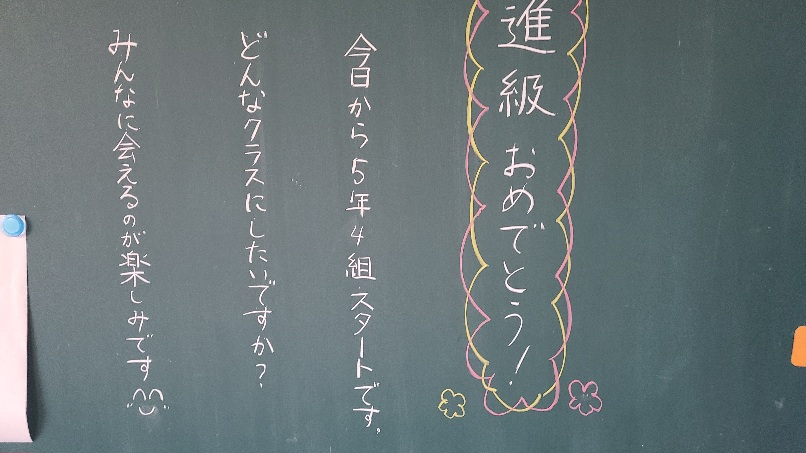 進級おめでとう!
今日から5年4組スタートです。
どんなクラスにしたいですか?
みんなに会えるのが楽しみです